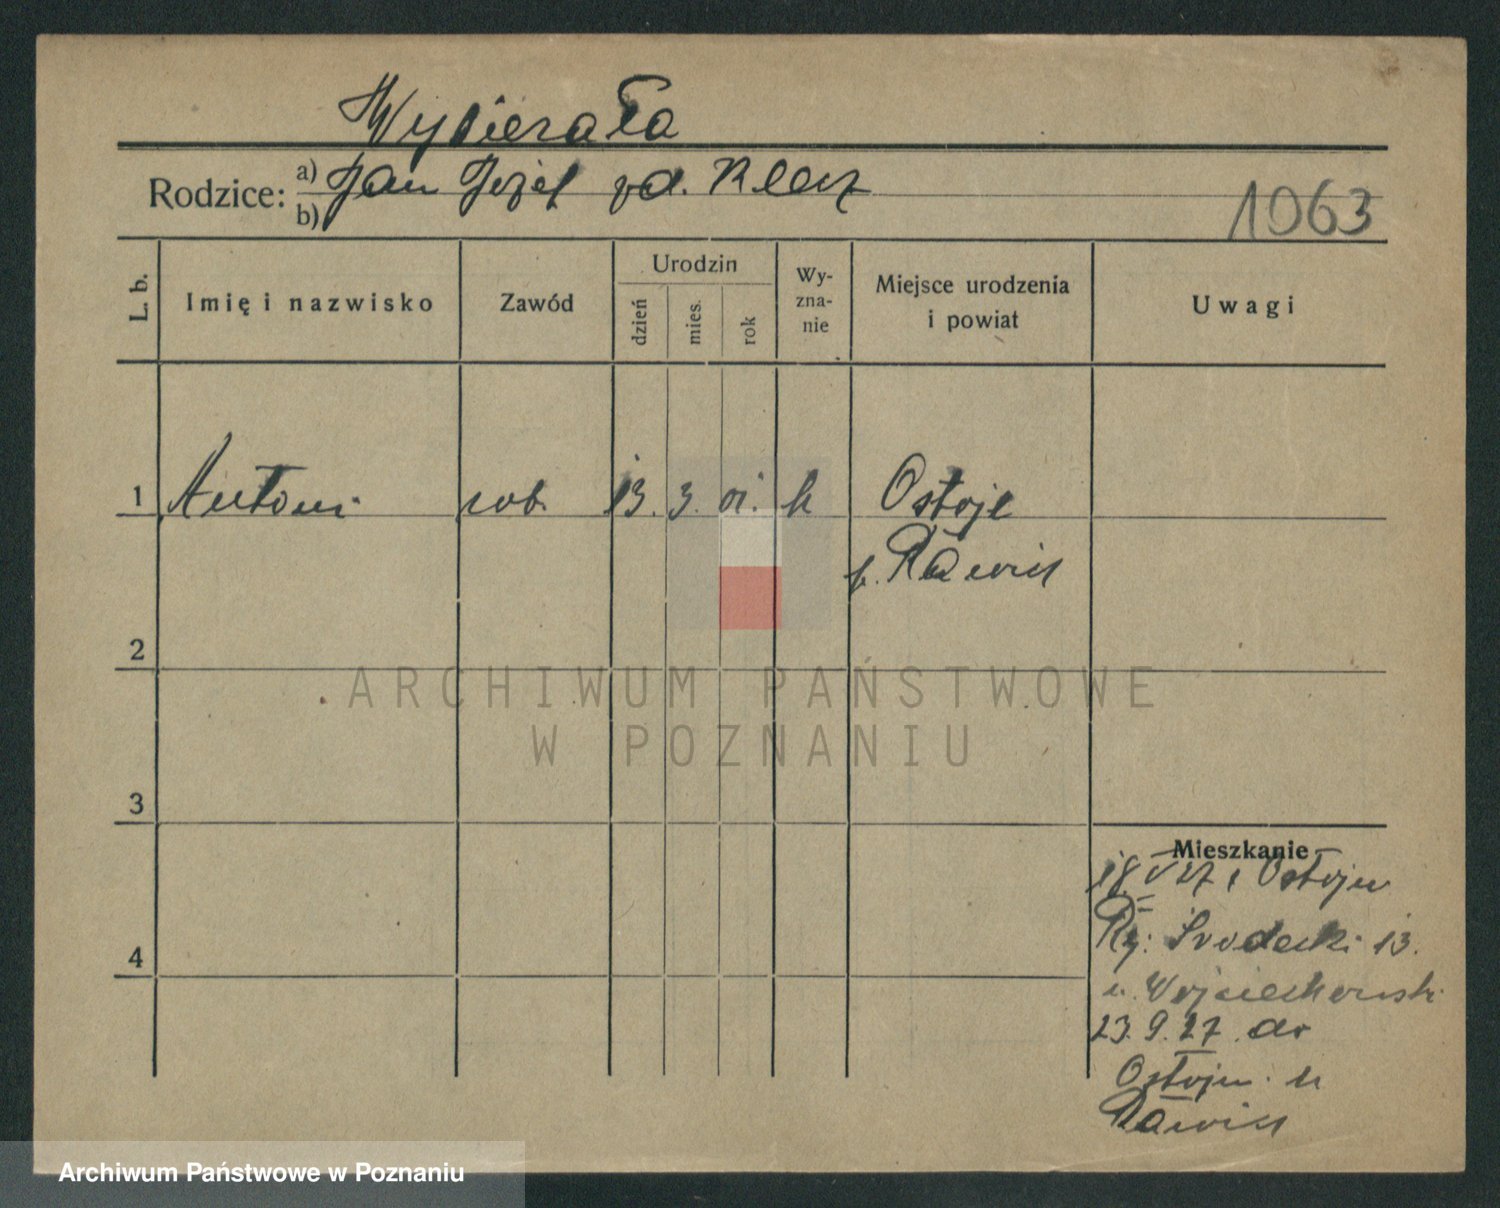 Wybierała
Rodzice: a) Jan Józef zd. Klecz
b)
1063
L. b.
Imię i nazwisko
Zawód
Urodzin
dzień
mies.
rok
Wy-
zna-
nie
Miejsce urodzenia
i powiat
Uwagi
1 Antoni rob. 13. 3. 01. k Ostoje
p. Rawicz
2
3
4
Mieszkanie
18. V 27 z Ostoju
Ry: Środecki 13.
u. Wojciechowski
23. 9. 27. do
Ostoju. k
Rawicz
ARCHIWUM PAŃSTWOWE
W POZNANIU
Archiwum Państwowe w Poznaniu